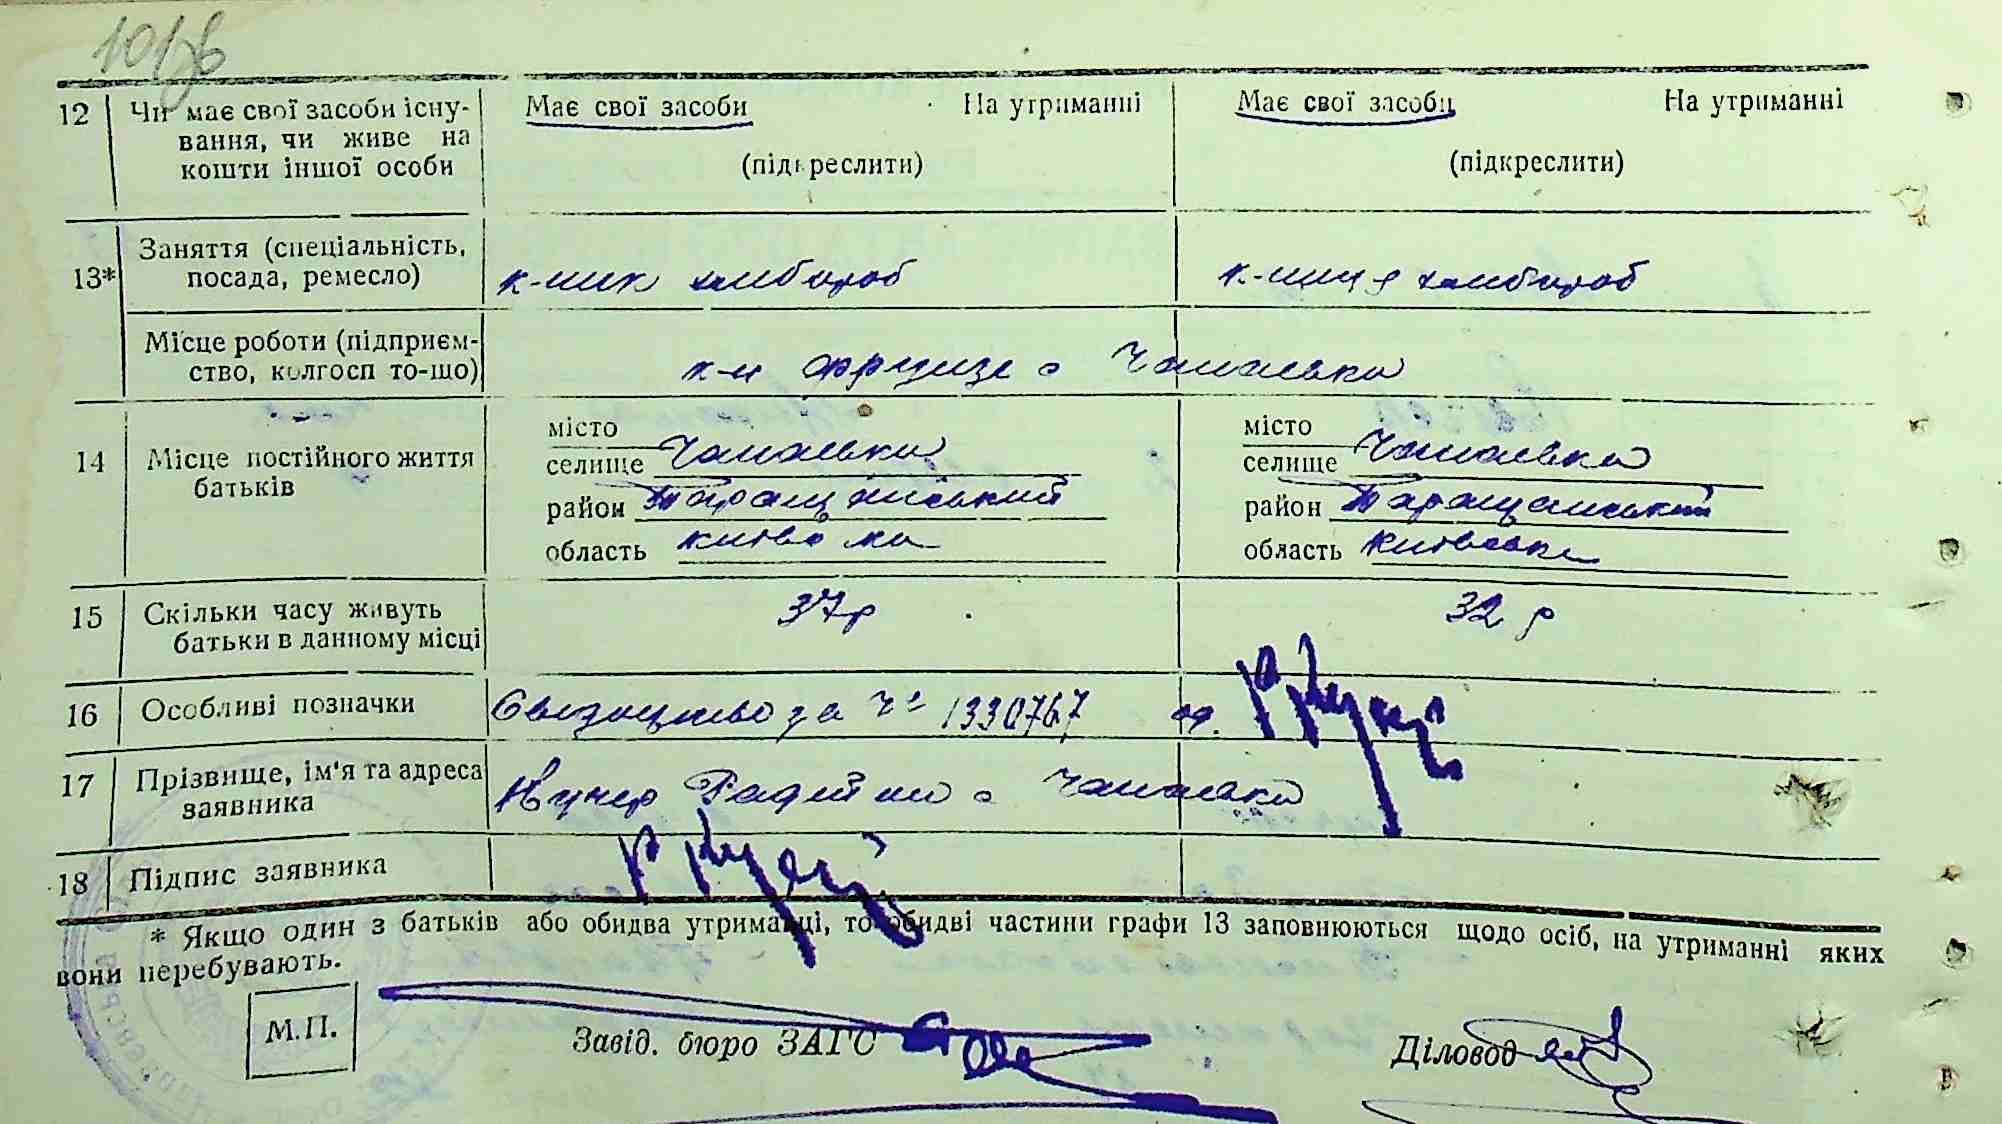 12 Чи має свої засоби існу- Має свої засоби На утриманні Має свої засоби На утриманні
вання, чи живе на
кошти іншої особи (підкреслити) (підкреслити)
13* Заняття (спеціальність,
посада, ремесло) к-ник хлібороб к-ниця хлібороб
Місце роботи (підприєм-
ство, колгосп то-що) к-п Фрунзе с
14 Місце постійного життя
батьків
місто місто
селище селище
район Таращанський район Таращанський
область Київська область Київська
15 Скільки часу живуть 37р 32 р
батьки в данному місці
16 Особливі позначки Свідоцтво за Чº 1330767 од.
17 Прізвище, ім'я та адреса
заявника с
18 Підпис заявника
* Якщо один з батьків або обидва утриманці, то обидві частини графи 13 заповнюються щодо осіб, на утриманні яких
вони перебувають.
М.П. Завід. бюро ЗАГС Діловод